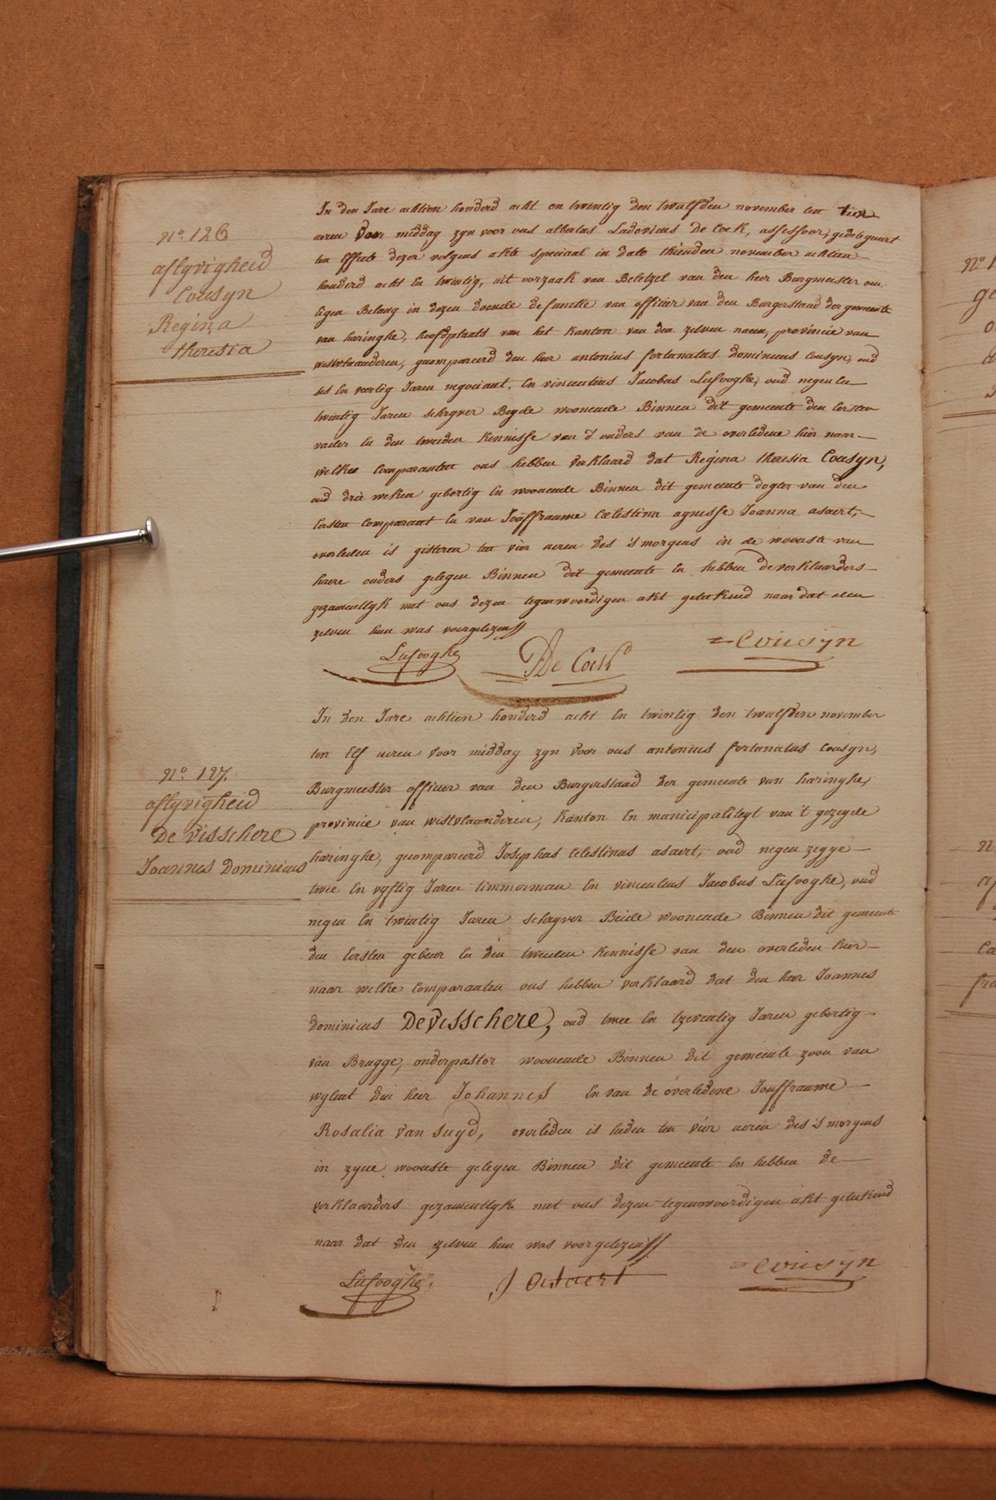 N.º 126
aflyvigheid
Cousyn
Regina
theresia
In den Jare achtien honderd acht en twintig den twalfden november ten tien
uren voor middag zyn voor ons Ludovicus De Cock, assessor, gedelegueert
ten effecte dezer volgens akte speciaal in dato thienden november achtien
honderd acht en twintig, uit oorzaak van Beletzel van den heer Burgmeester om
eigen Belang in dezen doende de functie van officier van den Burgerstaed der gemeente
van haringhe, hoofdplaats van het kanton van den zelven naem, provincie van
westvlaanderen, gecompareerd den heer antonius fortunatus dominicus Cousyn, oud
en veertig Jaren negociant, En vincentius Jacobus Lefooghe, oud negen en
twintig Jaren schryver Beyde woonende Binnen dit gemeente den Eersten
vader En den tweeden kennisse van d'ouders van de overledene hier naar
welke comparanten ons hebben verklaard dat Regina theresia Cousyn,
oud drie weken geboortig En woonende Binnen dit gemeente dogter van den
Eersten comparant En van Jouffrauwe Cœlestina agnesse Joanna asaert,
overleden is gisteren ten vier uren des 's morgens in de wooнste van
haere ouders gelegen Binnen dit gemeente En hebben de verklaarders
gezamentlyk met ons dezen tegenwoordigen akt geteekend naar dat den
zelven hun was voorgelezen
Lefooghe De Cock = Cousyn
N.º 127.
aflyvigheid
De Visschere
Joannes Dominicus
In den Jare achtien honderd acht En twintig den twalfden november
ten Elf uren voor middag zyn voor ons antonius fortunatus Cousyn,
Burgmeester officier van den Burgerstaed der gemeente van haringhe,
provincie van westvlaanderen, kanton En municipaliteyt van 't gezegde
haringhe, gecompareerd Josephus Celestinus asaert, oud negen zegge
twee En vyftig Jaren timmerman En vincentius Jacobus Lefooghe, oud
negen En twintig Jaren schryver Beide woonende Binnen dit gemeente
den Eersten gebeur En den tweeden kennisse van den overleden hier
naar welke comparanten ons hebben verklaard dat den heer Joannes
dominicus De Visschere, oud twee En tzeventig Jaren geboortig
van Brugge, onderpastor woonende Binnen dit gemeente zoon van
wylent den heer Johannes En van de overledene Jouffrauwe
Rosalia Van Suyd, overleden is heden ten vier uren des 's morgens
in zyne wooнste gelegen Binnen dit gemeente En hebben de
verklaarders gezamentlyk met ons dezen tegenwoordigen akt geteekend
naar dat den zelven hun was voorgelezen
Lefooghe J Asaert = Cousyn